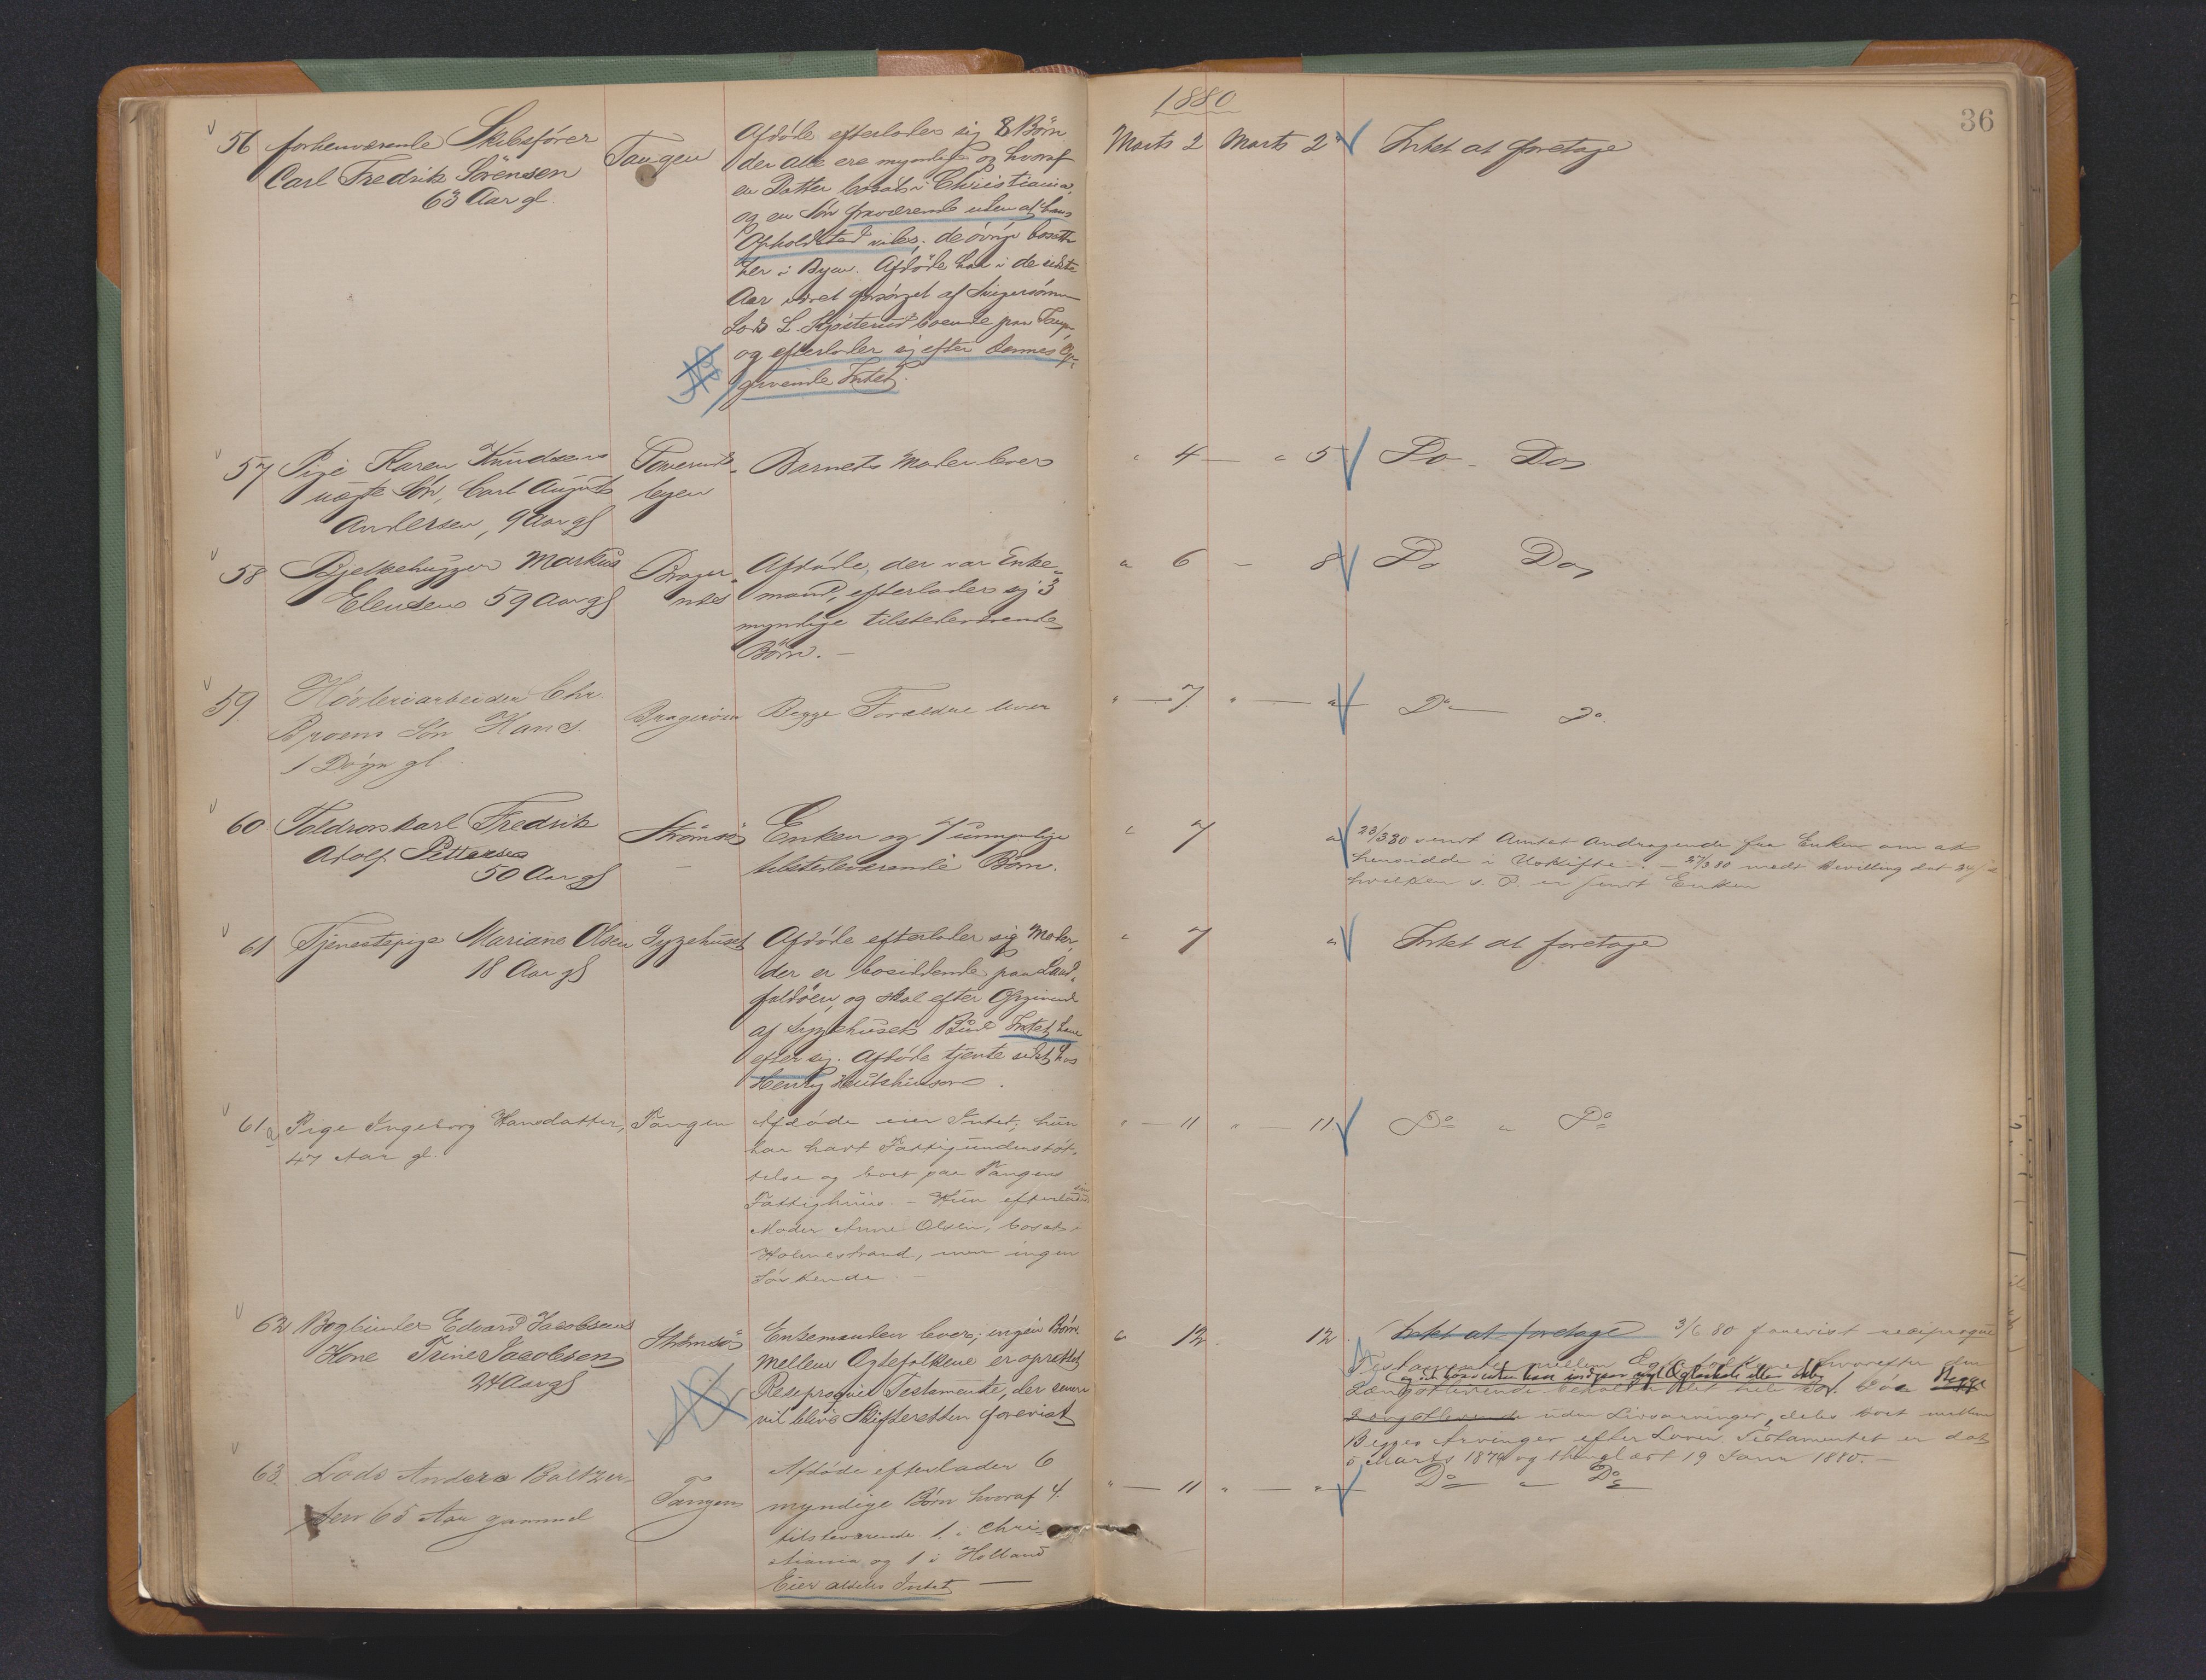 1880
36
56 forhenværende Skibsfører Tangen Afdøde efterlader sig 8 Börn Marts 2 Marts 2 Intet at foretage
Carl Fredrik Sörensen der alle ere myndige og hvoraf
63 Aar gl. en Datter bosat i Christiania,
og en Sön fraværende uden at hans
Opholdssted vides; de övrige bosatte
her i Byen. Afdöde har i de sidste
Aar været forsörget af Svigersönnen
Lods L. boende paa Tangen,
og efterlader sig efter dennes Op-
NB givende Intet.
57 Pige Karen Knudsens Barnets Moder lever " 4 " 5 Do Do
uægte Sön, Carl August
Andersen, 9 Aar gl
58 Bjelkehugger Markus Brager- Afdöde, der var Enke- " 6 8 Do Do
Elensen 59 Aar gl nes mand, efterlader sig 3
myndige tilstedeværende
Börn.
59 Høvleriarbeider Chr. Bragerøen Begge Forældre lever " 7 " " Do Do
Broens Sön Hans.
1 Døgn gl.
60 Toldrorskarl Fredrik Strömsö Enken og 7 umyndige " 7 " 23/3 80 sendt Amtet Andragende fra Enken om at
Adolf Pettersen tilstedeværende Börn. hensidde i Uskifte. 27/3 80 medt Bevilling dat 24/3
50 Aar gl hvilken s. D. er sendt Enken
61 Tjenestepige Mariane Olsen Sygehuset Afdöde efterlader sig Moder, " 7 " Intet at foretage
18 Aar gl der er bosiddende paa Land-
faldöen, og skal efter Opgivende
af Sygehusets Bud Intet have
efter sig. Afdöde tjente sidst hos
Henry
61a Pige Ingeborg Hansdatter, Tangen Afdøde eier Intet, hun " 11 " 11 Do " Do
47 Aar gl. har havt Fattigunderstøt-
telse og boet paa Tangens
Fattighuus. - Hun efterlader sin
Moder Anne Olsen, bosat i
Holmestrand, men ingen
Søskende. -
62 Bogbinder Edvard Jacobsens Strömsö Enkemanden lever; ingen Börn. " 12 12. Intet at foretage 3/6 80 forevist reciproque
Kone Trine Jacobsen Mellem Ægtefolkene er oprettet Testamente mellem Ægtefolkene, hvorefter den
24 Aar gl Reseproque Testamente, der senere og i det Tilfælde han indgaar nyt Ægteskab eller døer
NB vil blive Skifteretten forevist Længstlevende beholder det hele Bo. Begge
Længstlevende uden Livsarvinger, deles boet mellem
Begges Arvinger efter Loven. Testamentet er dat
5 Marts 1879 og thinglæst 19 Janr 1880. -
63. Lods Anders Baltzer- Tangen Afdøde efterlader 6 " 11 " " Do " Do
sen 65 Aar gammel myndige Børn hvoraf 4.
tilstedeværende. 1. i Chri-
stiania og 1 i Holland
Eier aldeles Intet